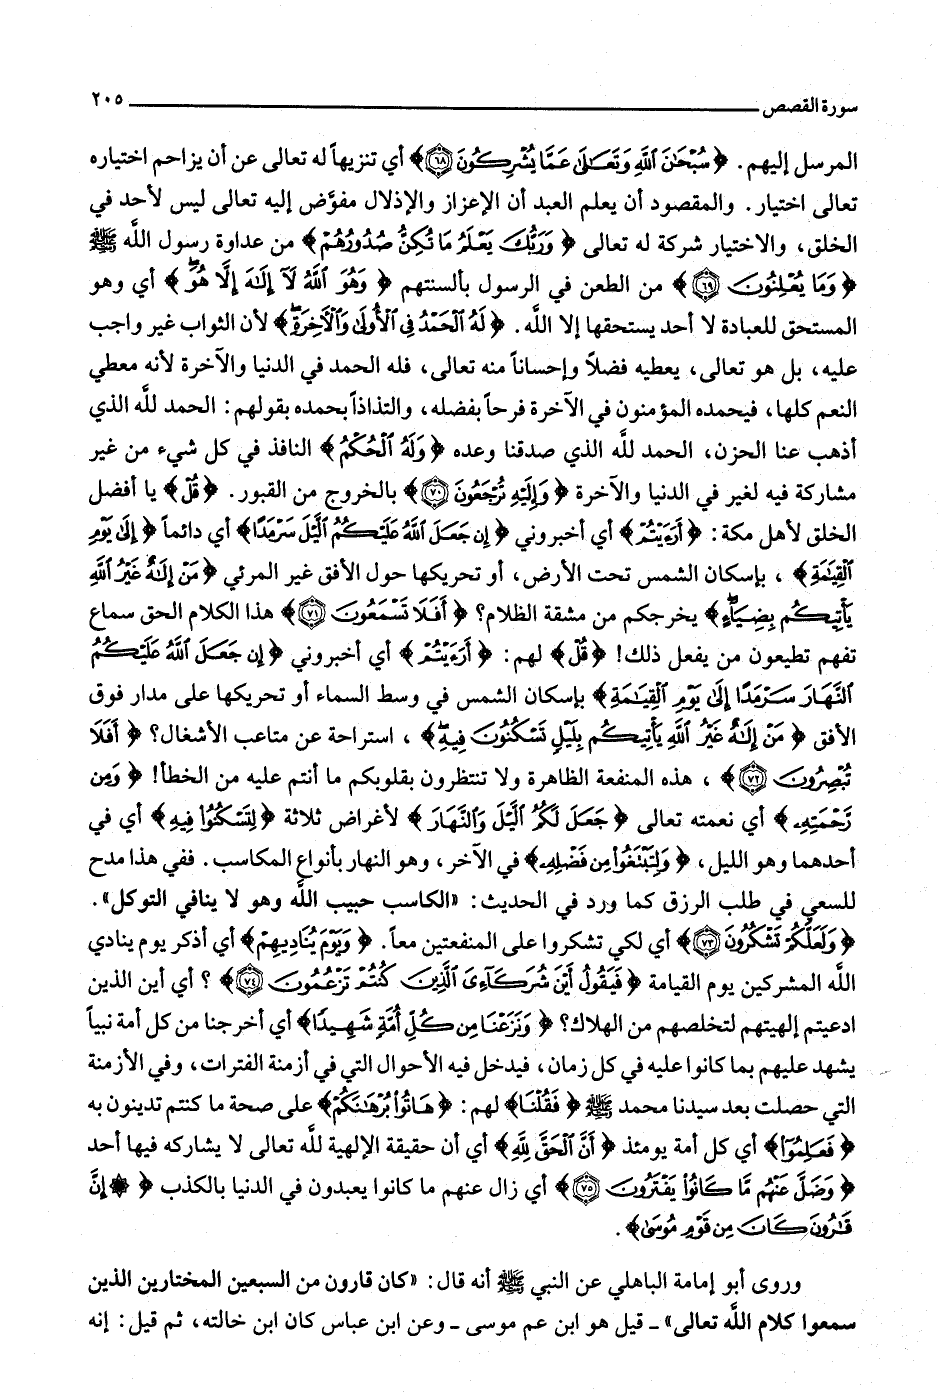 سورة القصص ٢٠٥
المرسل إليهم. ﴿ سُبْحَٰنَ ٱللَّهِ وَتَعَٰلَىٰ عَمَّا يُشْرِكُونَ ۝٦٨ ﴾ أي تنزيهاً له تعالى عن أن يزاحم اختياره
تعالى اختيار. والمقصود أن يعلم العبد أن الإعزاز والإذلال مفوَّض إليه تعالى ليس لأحد في
الخلق، والاختيار شركة له تعالى ﴿ وَرَبُّكَ يَعْلَمُ مَا تُكِنُّ صُدُورُهُمْ ﴾ من عداوة رسول اللَّه ﷺ
﴿ وَمَا يُعْلِنُونَ ۝٦٩ ﴾ من الطعن في الرسول بألسنتهم ﴿ وَهُوَ ٱللَّهُ لَآ إِلَٰهَ إِلَّا هُوَۖ ﴾ أي وهو
المستحق للعبادة لا أحد يستحقها إلا اللَّه. ﴿ لَهُ ٱلْحَمْدُ فِى ٱلْأُولَىٰ وَٱلْءَاخِرَةِۖ ﴾ لأن الثواب غير واجب
عليه، بل هو تعالى، يعطيه فضلاً وإحساناً منه تعالى، فله الحمد في الدنيا والآخرة لأنه معطي
النعم كلها، فيحمده المؤمنون في الآخرة فرحاً بفضله، والتذاذاً بحمده بقولهم: الحمد للَّه الذي
أذهب عنا الحزن، الحمد للَّه الذي صدقنا وعده ﴿ وَلَهُ ٱلْحُكْمُ ﴾ النافذ في كل شيء من غير
مشاركة فيه لغير في الدنيا والآخرة ﴿ وَإِلَيْهِ تُرْجَعُونَ ۝٧٠ ﴾ بالخروج من القبور. ﴿ قُلْ ﴾ يا أفضل
الخلق لأهل مكة: ﴿ أَرَءَيْتُمْ ﴾ أي أخبروني ﴿ إِن جَعَلَ ٱللَّهُ عَلَيْكُمُ ٱلَّيْلَ سَرْمَدًا ﴾ أي دائماً ﴿ إِلَىٰ يَوْمِ
ٱلْقِيَٰمَةِ ﴾ ، بإسكان الشمس تحت الأرض، أو تحريكها حول الأفق غير المرئي ﴿ مَنْ إِلَٰهٌ غَيْرُ ٱللَّهِ
يَأْتِيكُم بِضِيَآءٍۖ ﴾ يخرجكم من مشقة الظلام؟ ﴿ أَفَلَا تَسْمَعُونَ ۝٧١ ﴾ هذا الكلام الحق سماع
تفهم تطيعون من يفعل ذلك! ﴿ قُلْ ﴾ لهم: ﴿ أَرَءَيْتُمْ ﴾ أي أخبروني ﴿ إِن جَعَلَ ٱللَّهُ عَلَيْكُمُ
ٱلنَّهَارَ سَرْمَدًا إِلَىٰ يَوْمِ ٱلْقِيَٰمَةِ ﴾ بإسكان الشمس في وسط السماء أو تحريكها على مدار فوق
الأفق ﴿ مَنْ إِلَٰهٌ غَيْرُ ٱللَّهِ يَأْتِيكُم بِلَيْلٍ تَسْكُنُونَ فِيهِۖ ﴾ ، استراحة عن متاعب الأشغال؟ ﴿ أَفَلَا
تُبْصِرُونَ ۝٧٢ ﴾ ، هذه المنفعة الظاهرة ولا تنتظرون بقلوبكم ما أنتم عليه من الخطأ! ﴿ وَمِن
رَّحْمَتِهِۦ ﴾ أي نعمته تعالى ﴿ جَعَلَ لَكُمُ ٱلَّيْلَ وَٱلنَّهَارَ ﴾ لأغراض ثلاثة ﴿ لِتَسْكُنُوا۟ فِيهِ ﴾ أي في
أحدهما وهو الليل، ﴿ وَلِتَبْتَغُوا۟ مِن فَضْلِهِۦ ﴾ في الآخر، وهو النهار بأنواع المكاسب. ففي هذا مدح
للسعي في طلب الرزق كما ورد في الحديث: «الكاسب حبيب اللَّه وهو لا ينافي التوكل».
﴿ وَلَعَلَّكُمْ تَشْكُرُونَ ۝٧٣ ﴾ أي لكي تشكروا على المنفعتين معاً. ﴿ وَيَوْمَ يُنَادِيهِمْ ﴾ أي أذكر يوم ينادي
اللَّه المشركين يوم القيامة ﴿ فَيَقُولُ أَيْنَ شُرَكَآءِىَ ٱلَّذِينَ كُنتُمْ تَزْعُمُونَ ۝٧٤ ﴾ ؟ أي أين الذين
ادعيتم إلهيتهم لتخلصهم من الهلاك؟ ﴿ وَنَزَعْنَا مِن كُلِّ أُمَّةٍ شَهِيدًا ﴾ أي أخرجنا من كل أمة نبياً
يشهد عليهم بما كانوا عليه في كل زمان، فيدخل فيه الأحوال التي في أزمنة الفترات، وفي الأزمنة
التي حصلت بعد سيدنا محمد ﷺ ﴿ فَقُلْنَا ﴾ لهم: ﴿ هَاتُوا۟ بُرْهَٰنَكُمْ ﴾ على صحة ما كنتم تدينون به
﴿ فَعَلِمُوٓا۟ ﴾ أي كل أمة يومئذ ﴿ أَنَّ ٱلْحَقَّ لِلَّهِ ﴾ أي أن حقيقة الإلهية للَّه تعالى لا يشاركه فيها أحد
﴿ وَضَلَّ عَنْهُم مَّا كَانُوا۟ يَفْتَرُونَ ۝٧٥ ﴾ أي زال عنهم ما كانوا يعبدون في الدنيا بالكذب ﴿ ۞ إِنَّ
قَٰرُونَ كَانَ مِن قَوْمِ مُوسَىٰ ﴾.
وروى أبو إمامة الباهلي عن النبي ﷺ أنه قال: «كان قارون من السبعين المختارين الذين
سمعوا كلام اللَّه تعالى» ـ قيل هو ابن عم موسى ـ وعن ابن عباس كان ابن خالته، ثم قيل: إنه